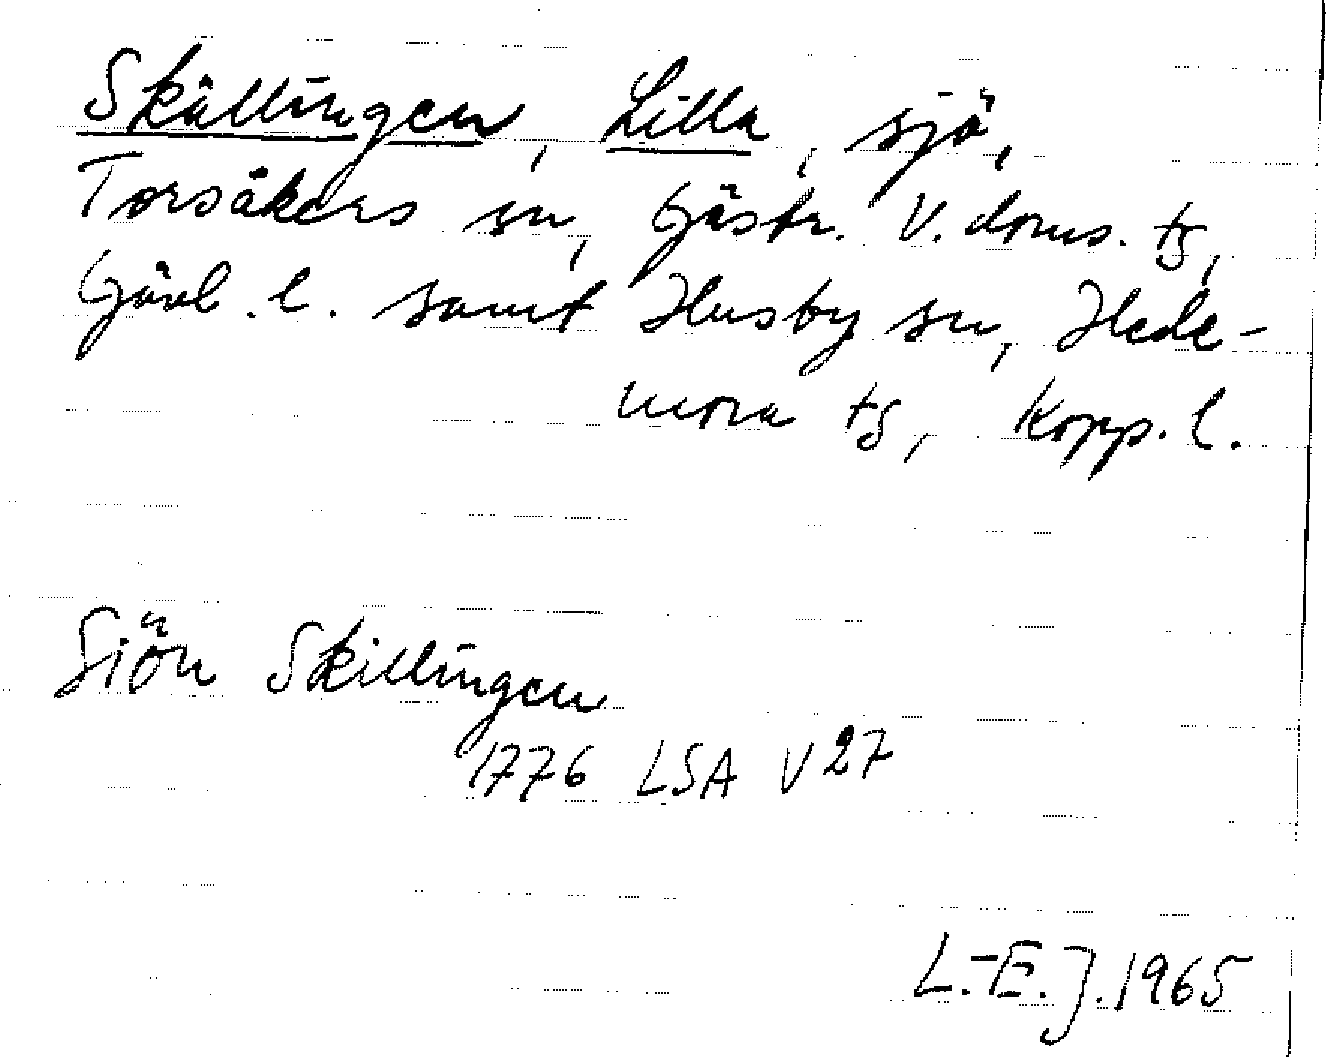 Skällingen, Lilla, sjö,
Torsåkers sn, Gästr. V. doms. tg,
Gävl. l. samt Husby sn, Hede-
mora tg, Kopp. l.
Siön Skillingen
1776 LSA V27
L.-E. J. 1965